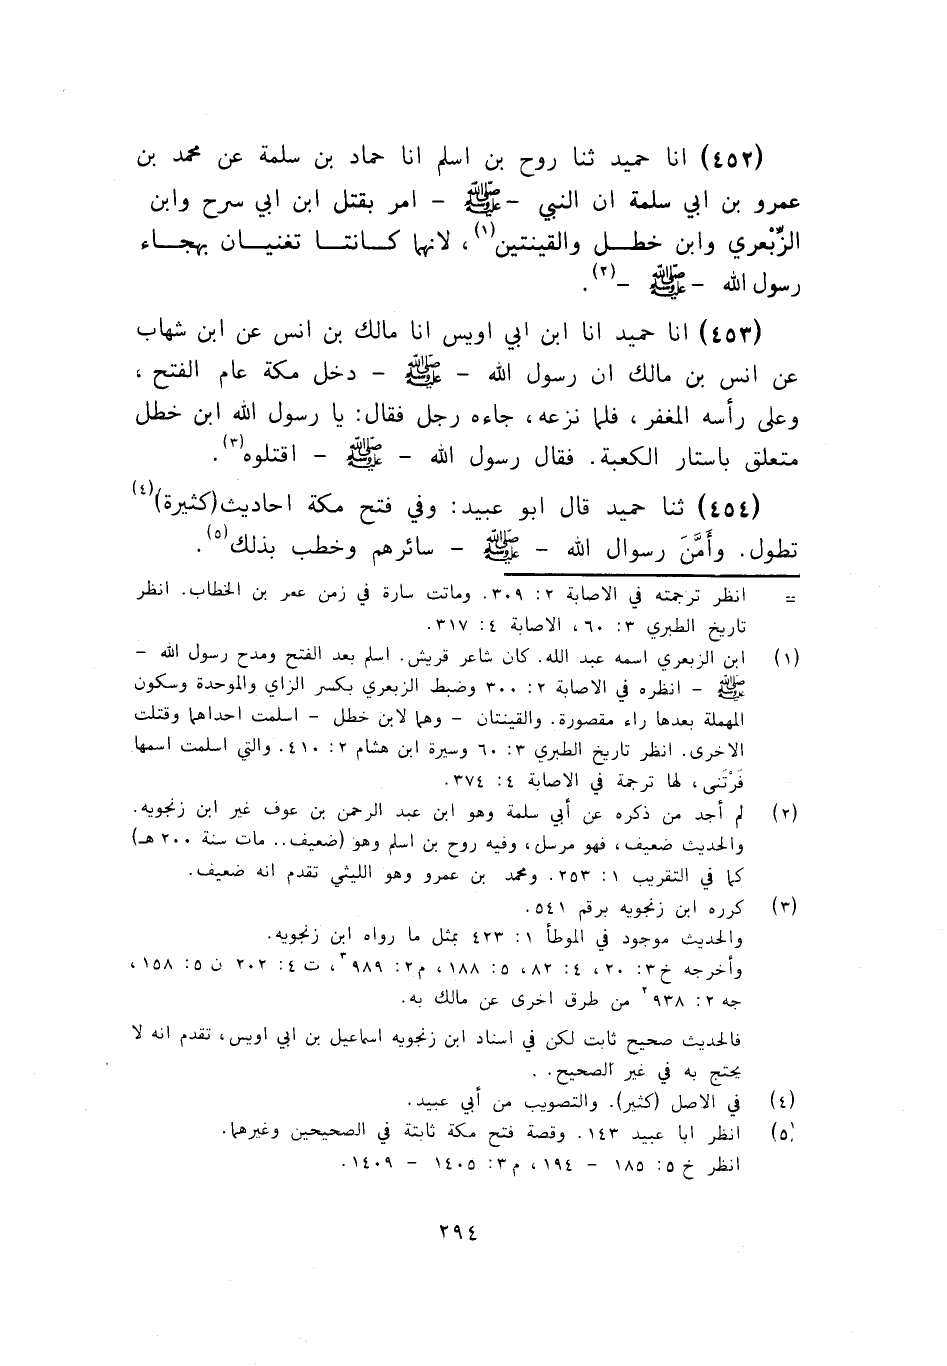 (٤٥٢) انا حميد ثنا روح بن اسلم انا حماد بن سلمة عن محمد بن
عمرو بن ابي سلمة ان النبي - ﷺ - امر بقتل ابن ابي سرح وابن
الزِّبَعْري وابن خطل والقينتين(١)، لانها كانتا تغنيان بهجاء
رسول الله - ﷺ -(٢).
(٤٥٣) انا حميد انا ابن ابي اويس انا مالك بن انس عن ابن شهاب
عن انس بن مالك ان رسول الله - ﷺ - دخل مكة عام الفتح ،
وعلى رأسه المغفر ، فلما نزعه ، جاءه رجل فقال: يا رسول الله ابن خطل
متعلق باستار الكعبة. فقال رسول الله - ﷺ - اقتلوه(٣).
(٤٥٤) ثنا حميد قال ابو عبيد: وفي فتح مكة احاديث(كثيرة)(٤)
تطول. وأَمَّنَ رسوال الله - ﷺ - سائرهم وخطب بذلك(٥).
= انظر ترجمته في الاصابة ٢: ٣٠٩. وماتت سارة في زمن عمر بن الخطاب. انظر
تاريخ الطبري ٣: ٦٠، الاصابة ٤: ٣١٧.
(١) ابن الزبعري اسمه عبد الله. كان شاعر قريش. اسلم بعد الفتح ومدح رسول الله -
ﷺ - انظره في الاصابة ٢: ٣٠٠ وضبط الزبعري بكسر الزاي والموحدة وسكون
المهملة بعدها راء مقصورة. والقينتان - وهما لابن خطل - اسلمت احداهما وقتلت
الاخرى. انظر تاريخ الطبري ٣: ٦٠ وسيرة ابن هشام ٢: ٤١٠. والتي اسلمت اسمها
فَرْتَنى ، لها ترجمة في الاصابة ٤: ٣٧٤.
(٢) لم أجد من ذكره عن أبي سلمة وهو ابن عبد الرحمن بن عوف غير ابن زنجويه.
والحديث ضعيف، فهو مرسل، وفيه روح بن اسلم وهو (ضعيف.. مات سنة ٢٠٠ هـ)
كما في التقريب ١: ٢٥٣. ومحمد بن عمرو وهو الليثي تقدم انه ضعيف.
(٣) كرره ابن زنجويه برقم ٥٤١.
والحديث موجود في الموطأ ١: ٤٢٣ بمثل ما رواه ابن زنجويه.
وأخرجه خ ٣: ٢٠، ٤: ٨٢، ٥: ١٨٨، م ٢: ٩٨٩، ت ٤: ٢٠٢ ن ٥: ١٥٨،
جه ٢: ٩٣٨ من طرق اخرى عن مالك به.
فالحديث صحيح ثابت لكن في اسناد ابن زنجويه اسماعيل بن ابي اويس، تقدم انه لا
يحتج به في غير الصحيح.
(٤) في الاصل (كثير). والتصويب من أبي عبيد.
(٥) انظر ابا عبيد ١٤٣. وقصة فتح مكة ثابتة في الصحيحين وغيرهما.
انظر خ ٥: ١٨٥ - ١٩٤، م ٣: ١٤٠٥ - ١٤٠٩.
٢٩٤